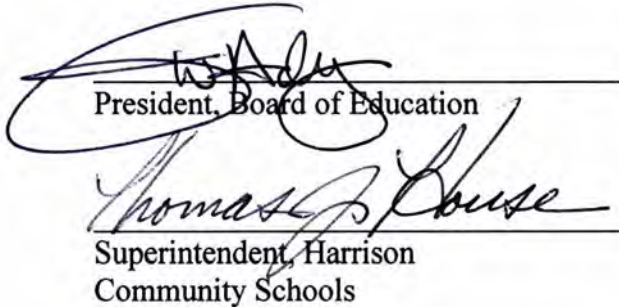 President, Board of Education
Thomas J House
Superintendent, Harrison
Community Schools